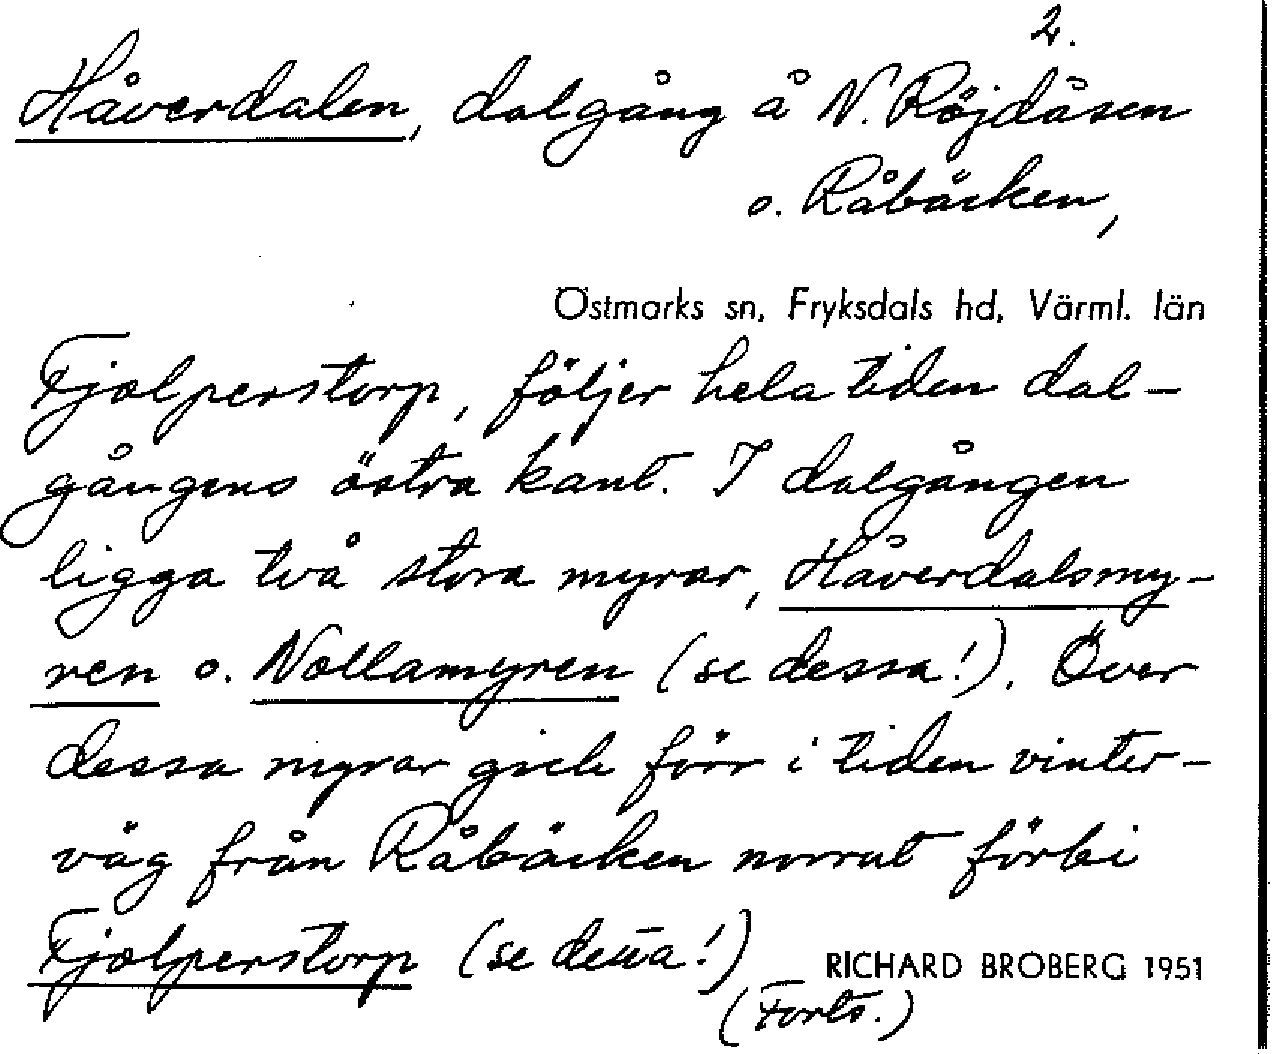 2.
Håverdalen, dalgång å N. Röjdåsen
o. Råbäcken,
Östmarks sn, Fryksdals hd, Värml. län
Fjolperstorp, följer hela tiden dal-
gångens östra kant. I dalgången
ligga två stora myrar, Håverdalsmy-
ren o. Nollamyren (se dessa!). Över
dessa myrar gick förr i tiden vinter-
väg från Råbäcken norrut förbi
Fjolperstorp (se detta!)
RICHARD BROBERG 1951
(Forts.)